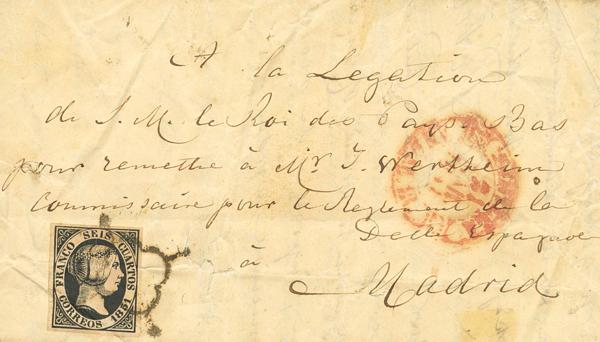 A la Legation
de S. M. le Roi des Pays-Bas
pour remettre à Mr. J. Wertheim
Commissaire pour le Reglement de la
Dette Espagnole
à
Madrid
FRANCO SEIS CUARTOS
CORREOS 1851